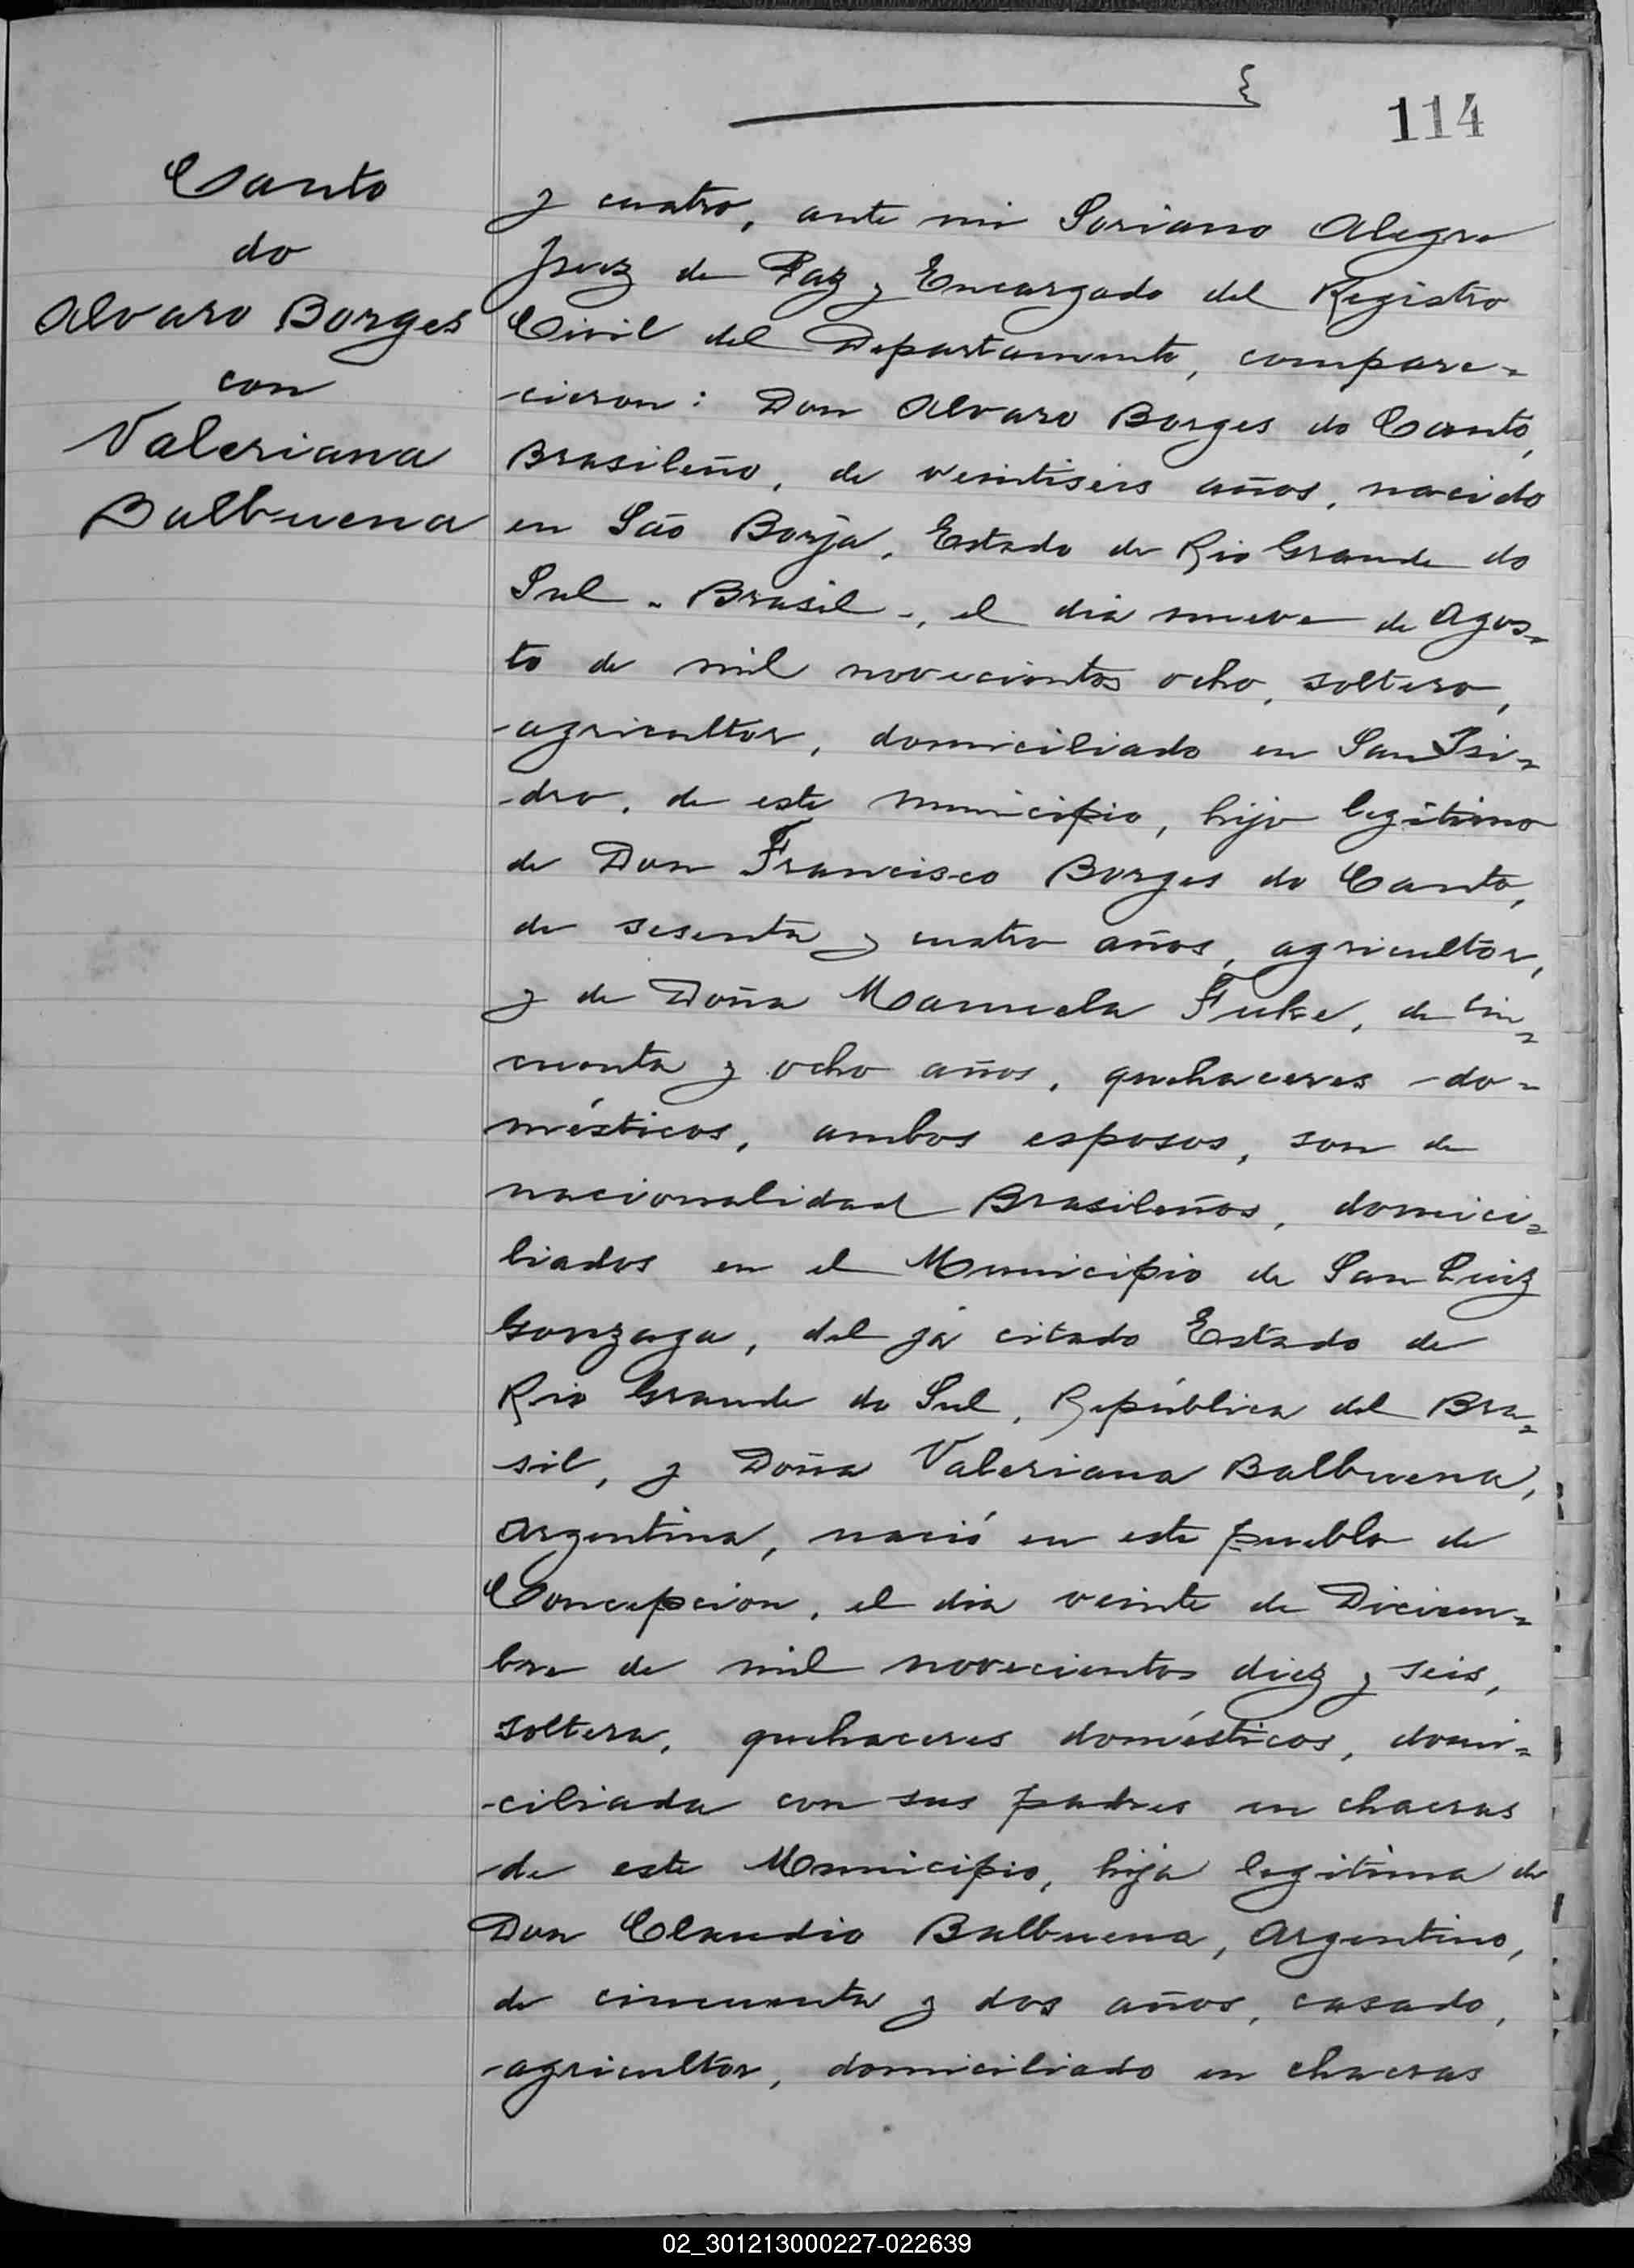 114
Canto
do
Alvaro Borges
con
Valeriana
Balbuena
y cuatro, ante mi Soriano Alegre
Juez de Paz y Encargado del Registro
Civil del Departamento, compare-
cieron: Don Alvaro Borges do Canto,
Brasileño, de veintiseis años, nacido
en São Borja, Estado de Rio Grande do
Sul - Brasil -, el dia nueve de Agos-
to de mil novecientos ocho, soltero,
agricultor, domiciliado en San Isi-
dro, de este municipio, hijo legítimo
de Don Francisco Borges do Canto,
de sesenta y cuatro años, agricultor,
y de Doña Manuela Fuke, de cin-
cuenta y ocho años, quehaceres do-
mésticos, ambos esposos, son de
nacionalidad Brasileños, domici-
liados en el Municipio de San Luiz
Gonzaga, del já citado Estado de
Rio Grande do Sul, República del Bra-
sil, y Doña Valeriana Balbuena,
Argentina, nació en este pueblo de
Concepcion, el dia veinte de Diciem-
bre de mil novecientos diez y seis,
soltera, quehaceres domésticos, domi-
ciliada con sus padres en chacras
de este Municipio, hija legitima de
Don Claudio Balbuena, Argentino,
de cincuenta y dos años, casado,
agricultor, domiciliado en chacras
02_301213000227-022639